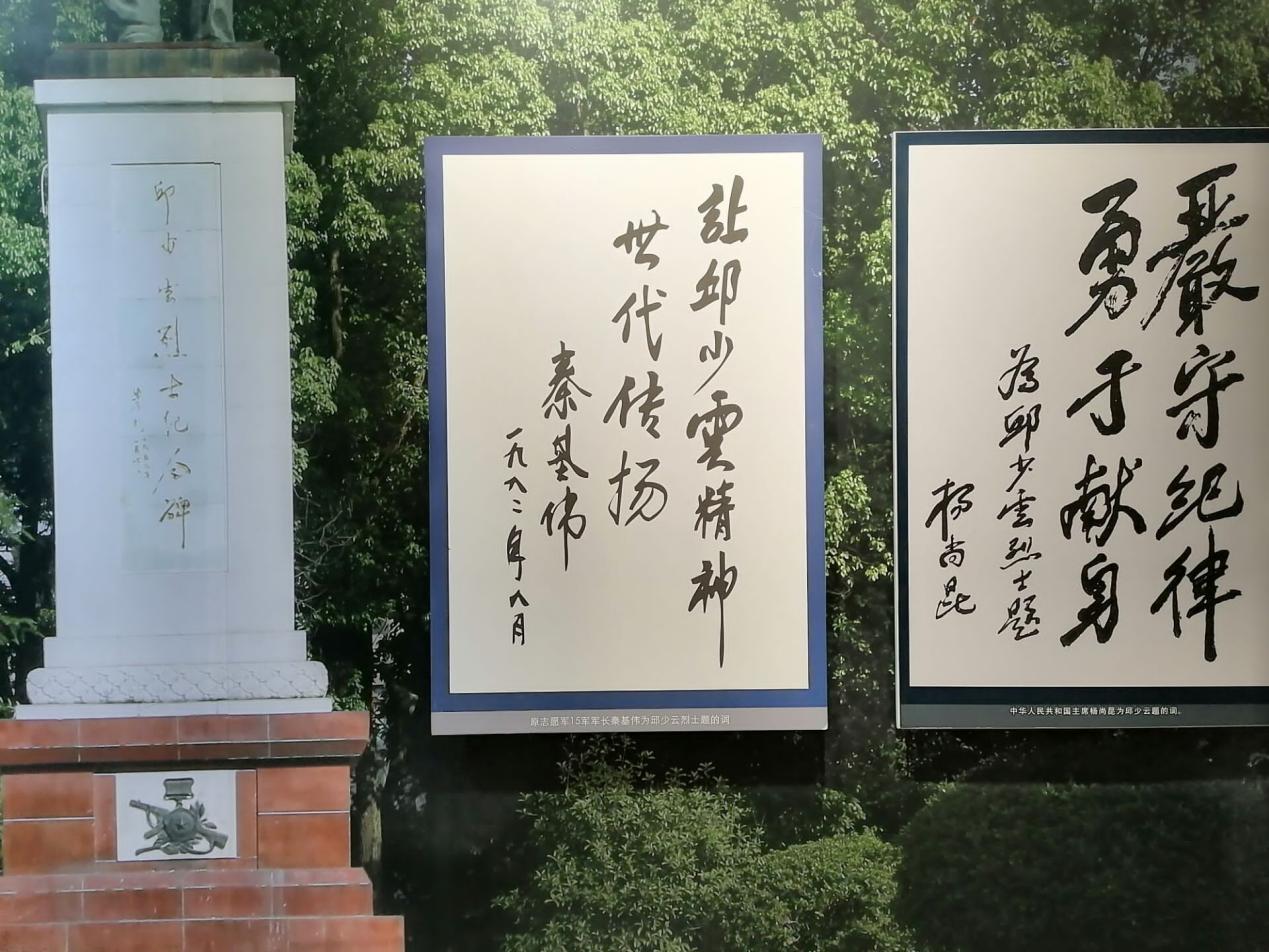 邱少云烈士纪念碑
讓邱少雲精神
世代传扬
秦基伟
一九九二年八月
原志愿军15军军长秦基伟为邱少云烈士题的词
嚴守纪律
勇于献身
為邱少雲烈士题
杨尚昆
中华人民共和国主席杨尚昆为邱少云题的词。